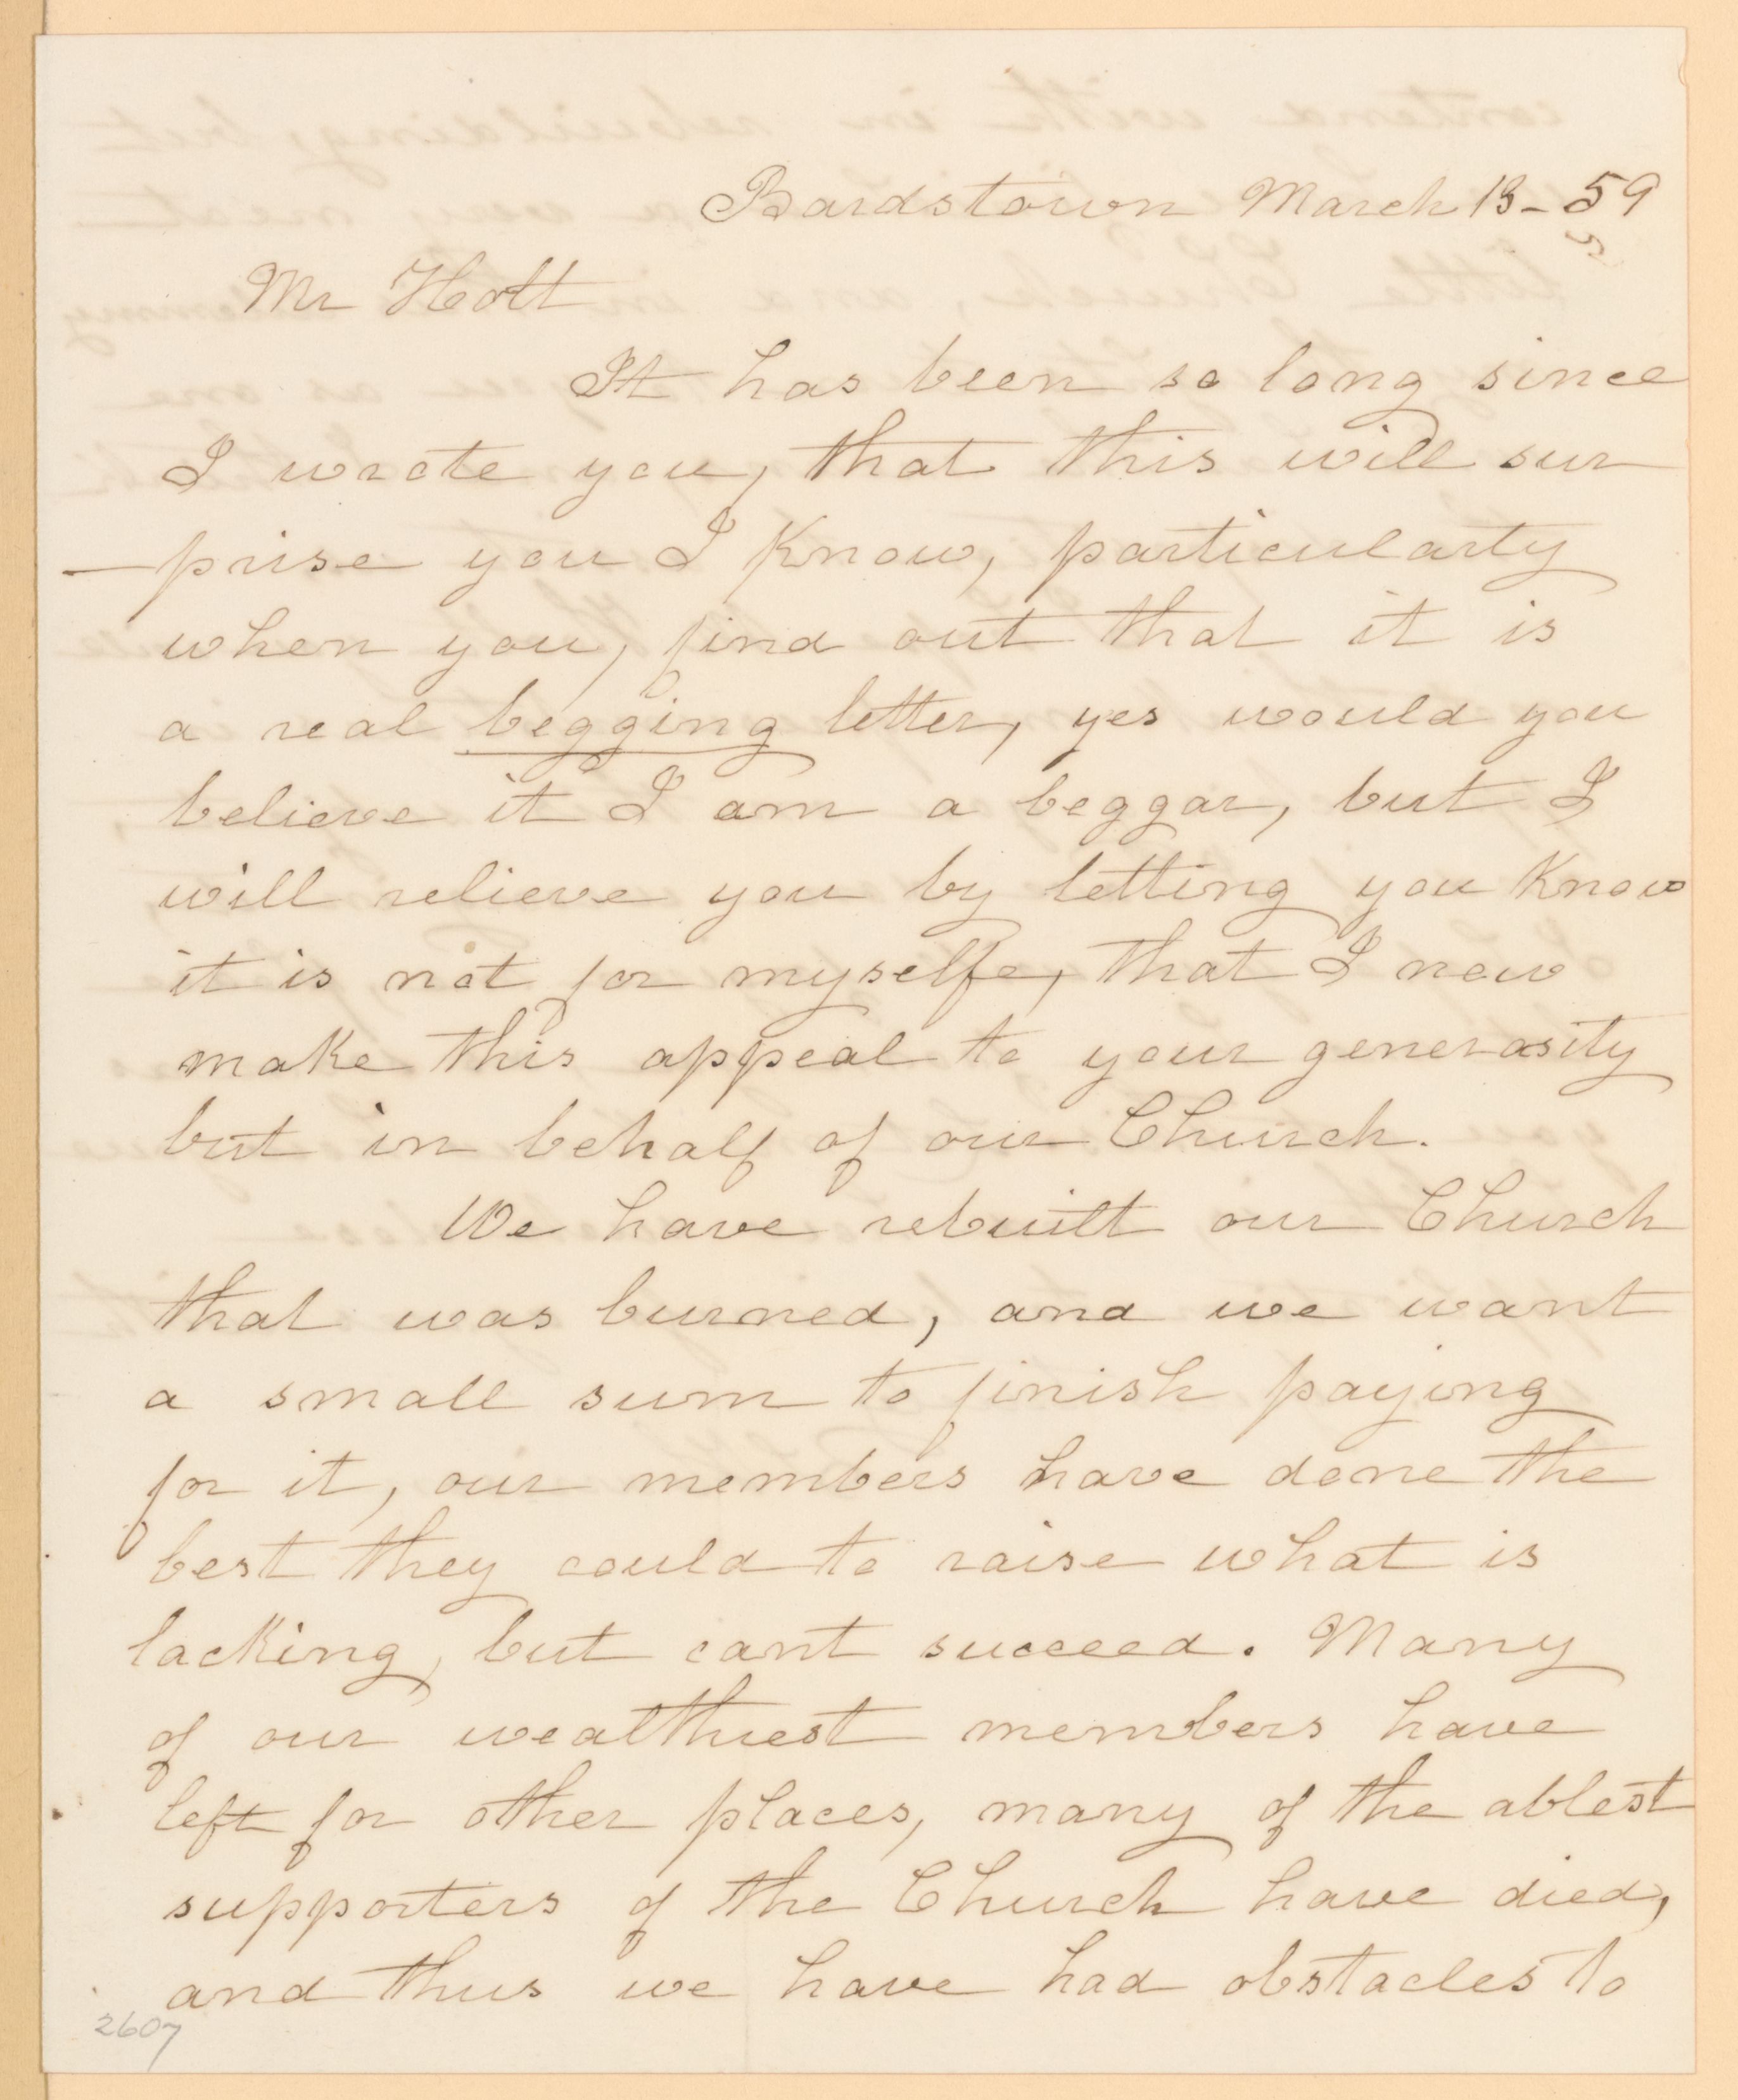 Bardstown March 13-59
Mr Holt
It has been so long since
I wrote you, that this will sur
-prise you I know, particularly
when you, find out that it is
a real begging letter, yes would you
believe it I am a beggar, but I
will relieve you by letting you know
it is not for myselfe, that I now
make this appeal to your generosity
but in behalf of our Church.
We have rebuilt our Church
that was burned, and we want
a small sum to finish paying
for it, our members have done the
best they could to raise what is
lacking, but cant succeed. Many
of our wealthiest members have
left for other places, many of the ablest
supporters of the Church have died,
and thus we have had obstacles to
2607